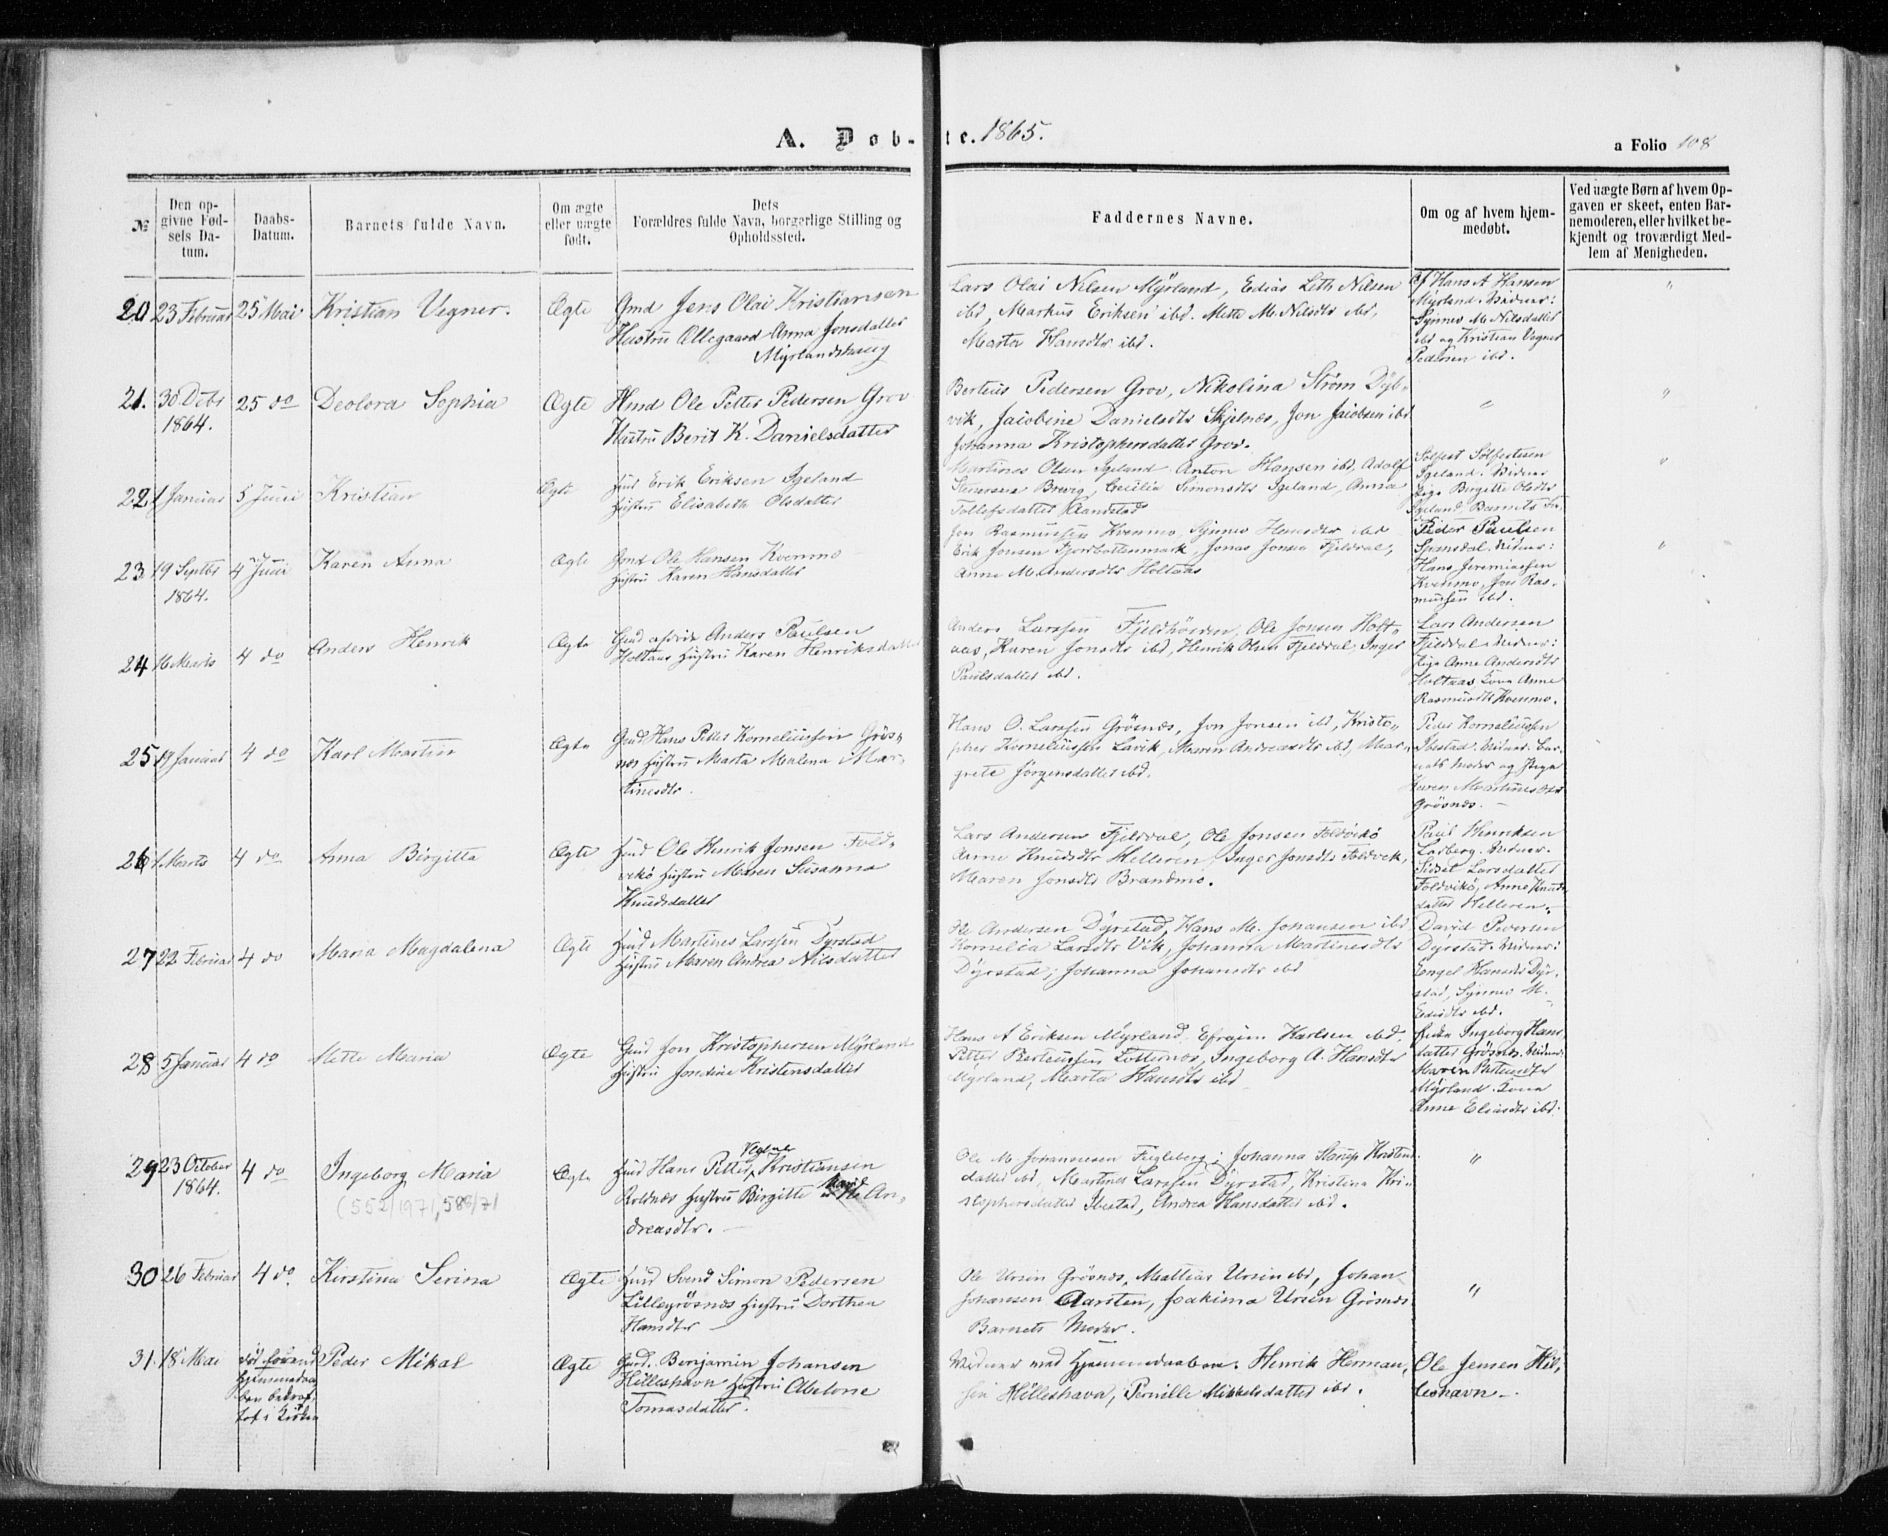 A. Døb-te. 1865.
a Folio 108
№
Den opgivne Fødsels Datum.
Daabs-Datum.
Barnets fulde Navn.
Om ægte eller uægte født.
Dets Forældres fulde Navn, borgerlige Stilling og Opholdssted.
Faddernes Navne.
Om og af hvem hjemmedøbt.
Ved uægte Børn af hvem Opgaven er skeet, enten Barnemoderen, eller hvilket bekjendt og troværdigt Medlem af Menigheden.
20 23 Februar 25 Mai Kristian Vegner. Ægte Gmd Jens Olai Kristiansen
Hustru Ollegaard Anna Jonsdatter
Myrlandshaug
Lars Olai Nilsen Myrland, Edias Lith Nilsen
ibd, Markus Eriksen ibd. Mette M. Nilsdtr ibd,
Marta Hansdtr ibd.
af Hans A Hansen
Myrland. Vidner:
Synnev M. Nilsdatter
ibd og Kristian Vegner
Pedersen ibd.
"
21. 30 Decbr 1864. 25 do Deolora Sophia Ægte Hmd Ole Petter Pedersen Grov
Hustru Berit K. Danielsdatter
Berteus Pedersen Grov, Nikolina Strøm Dyb-
vik, Jacobine Danielsdtr Skjelnes, Jon Jacobsen ibd
Johanna Kristophersdatter Grov.
"
"
22 1 Januar 5 Juni Kristian Ægte Hmd Erik Eriksen Igeland
Hustru Elisabeth Olsdatter
Martines Olsen Igeland, Anton Hansen ibd, Adolf
Stenersen Brevig, Cecilia Simonsdtr Igeland, Anna
Tollefsdatter
Solfest Solfestsen
Igeland. Vidner
Pige Birgitte Olsdtr
Igeland Barnets
"
23 19 Septbr 1864. 4 Juni Karen Anna Ægte Gmd Ole Hansen Kvenmo
Hustru Karen Hansdatter
Jon Rasmussen Kvenmo, Synnev Hansdtr ibd
Erik Jonsen Fjordbottenmark, Jonas Jonsen Fjeldval,
Anne M. Andersdtr Holtaas
Peder Paulsen
Spansdal. Vidner:
Hans Jeremiassen
Kvenmo, Jon Ras-
mussen ibd.
"
24 16 Marts 4 do Anders Henrik Ægte Gmd Anders Paulsen
Holtaas Hustru Karen Henriksdatter
Anders Larssen Fjeldhøgden, Ole Jonsen Holt-
aas, Karen Jonsdtr ibd, Henrik Olsen Fjeldval, Inger
Paulsdatter ibd.
Lars Andersen
Fjeldval. Vidner:
Pige Anne Andersdtr
Holtaas Kona Anne
Rasmusdtr Kvenmo.
25 19 Januar 4 do Karl Martin Ægte Gmd Hans Petter Korneliussen Grøs-
nes Hustru Marta Malena Mar-
tinesdtr.
Hans O. Larssen Grøsnes, Jon Jonsen ibd, Kristo-
pher Korneliussen Lavik, Maren Andreasdtr ibd, Mar-
grete Jørgensdatter ibd.
Peder Korneliussen
Ibestad. Vidner: Bar-
nets Moder og Pige
Karen Martinesdtr
Grøsnes. -
26 1 Marts 4 do Anna Birgitta Ægte Hmd Ole Henrik Jonsen Fold-
vikø Hustru Maren Susanna
Knudsdatter
Lars Andersen Fjeldval, Ole Jonsen Foldvikø
Anne Knudsdtr Helleren, Inger Jonsdtr Foldvik,
Maren Jonsdtr Brandmo.
Paul Henriksen
Ladberg. Vidner.
Sidsel Larsdatter
Foldvikø, Anne Knuds-
datter Helleren.
27 22 Februar 4 do Maria Magdalena Ægte Hmd Martines Larssen Dyrstad
Hustru Maren Andrea Nilsdatter
Ole Andersen Dyrstad, Hans M. Johansen ibd
Kornelia Larsdtr Vik, Johanna Martinesdtr
Dyrstad, Johanna Johansdtr ibd
David Pedersen
Dyrstad. Vidner:
Engel Hansdtr Dyr-
stad, Synnev M.
ibd.
28 5 Januar 4 do Mette Maria Ægte Gmd Jon Kristophersen Myrland
Hustru Jondine Kristensdatter
Hans A Eriksen Myrland, Efraim Karlsen ibd,
Petter Berteussen Lotternes, Ingeborg A. Hansdtr
Myrland, Marta Hansdtr ibd
Ingeborg Hans
datter Grøsnes. Vidner:
Maren
Myrland. Kona
Anne Eliasdtr ibd.
29 23 October 1864. 4 do Ingeborg Maria (552/1971, 588/71 Ægte Hmd Hans Petter Kristiansen
Roldnes Hustru Birgitte An-
dreasdtr. -
Ole M. Johannesen Fugleberg, Johanna Kristens
datter ibd, Martines Larssen Dyrstad, Kristina Kri-
stophersdatter Ibestad, Andrea Hansdatter ibd.
"
30 26 Februar 4 do. Kirstina Serina Ægte Hmd Svend Simon Pedersen
Lillegrøsnes Hustru Dorthea
Hansdtr
Ole Ursin Grøsnes, Mattias Ursin ibd, Johan
Johansen Aarsten, Joakima Ursin Grøsnes
Barnets Moder.
"
31. 18 Mai død forend Hjemmedaaben bekræftet i Kirken Peder Mikal Ægte Gmd. Benjamin Johansen
Hilleshavn Hustru Abelone
Tomasdatter.
Vidner ved Hjemmedaaben. Henrik Herman-
sen Hilleshavn, Pernille Mikkelsdatter ibd.
Ole Jensen Hil-
leshavn -.